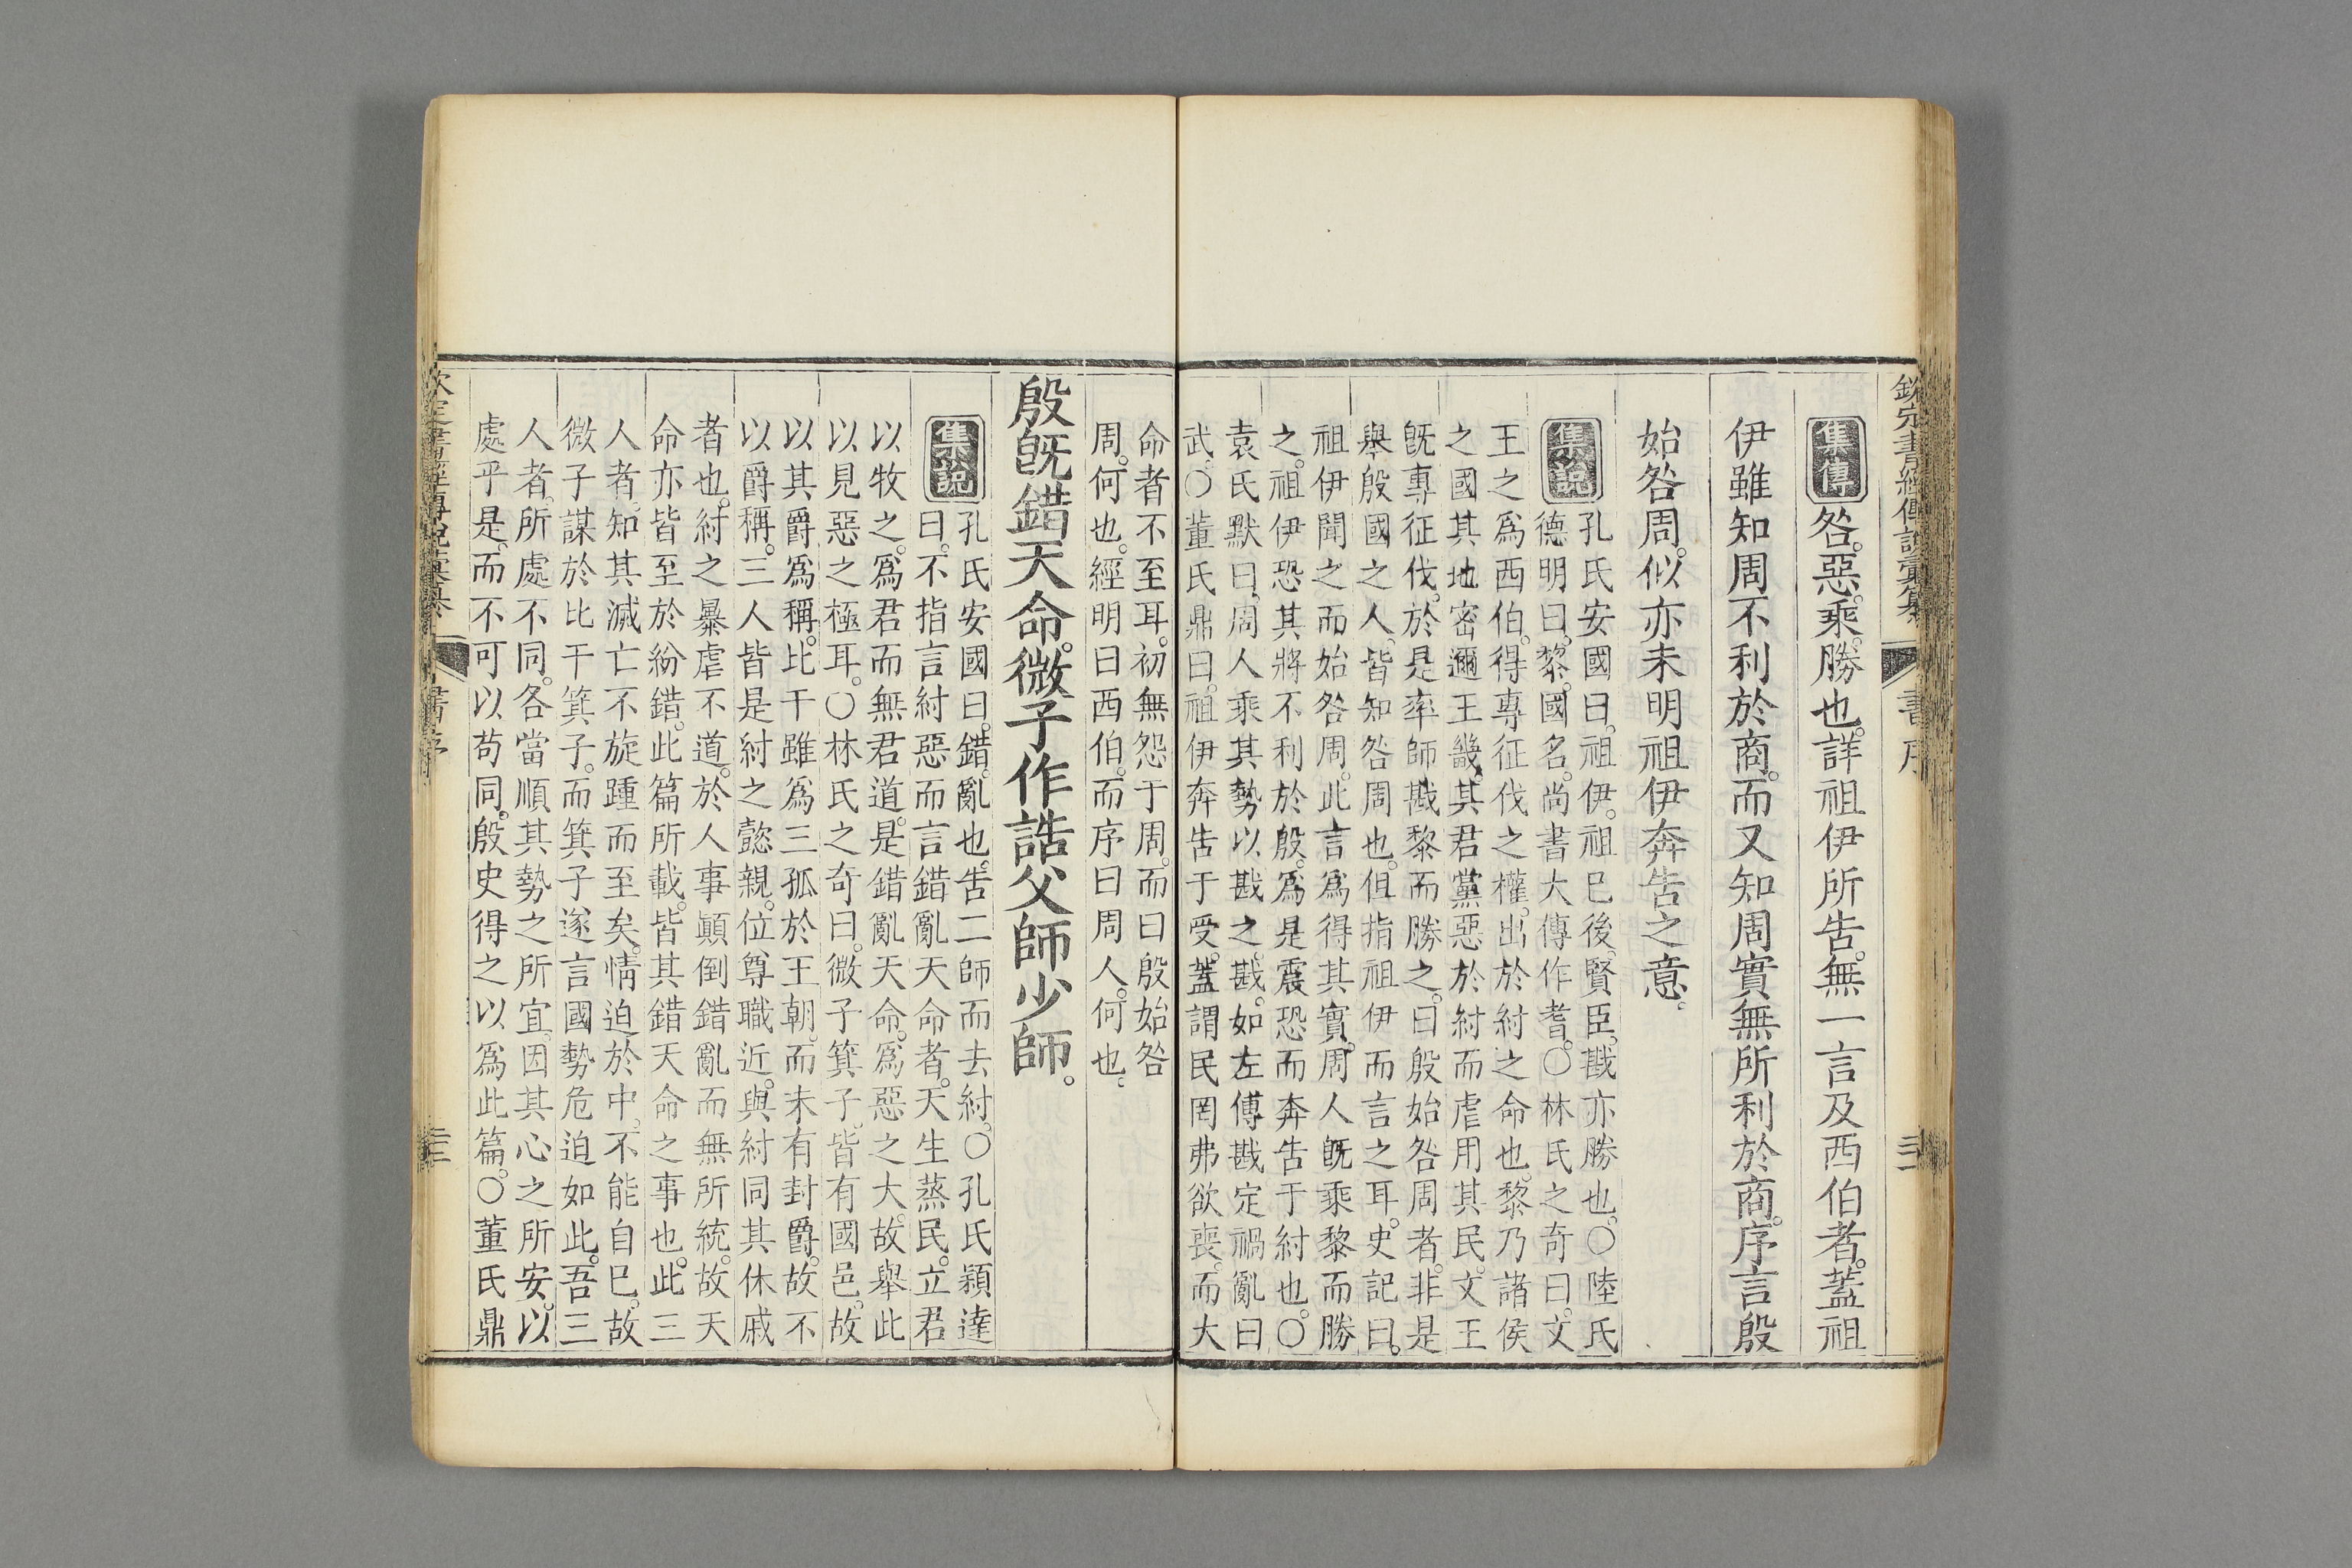 欽定書經傳說彙纂 書序
集傳 咎。惡。乘。勝也。詳祖伊所告。無一言及西伯者。蓋祖
伊雖知周不利於商。而又知周實無所利於商。序言殷
始咎周。似亦未明祖伊奔告之意。
集說 孔氏安國曰。祖伊。祖巳後。賢臣。戡亦勝也。○陸氏
德明曰。黎。國名。尚書大傳作耆。○林氏之奇曰。文
王之爲西伯。得專征伐之權。出於紂之命也。黎乃諸侯
之國其地密邇王畿。其君黨惡於紂而虐用其民。文王
旣專征伐。於是率師戡黎而勝之。曰殷始咎周者。非是
舉殷國之人。皆知咎周也。但指祖伊而言之耳。史記曰。
祖伊聞之而始咎周。此言爲得其實。周人旣乘黎而勝
之。祖伊恐其將不利於殷。爲是震恐而奔告于紂也。○
袁氏默曰。周人乘其勢以戡之。戡。如左傳戡定禍亂曰
武。○董氏鼎曰。祖伊奔告于受。蓋謂民罔弗欲喪。而大
命者不至耳。初無怨于周。而曰殷始咎
周。何也。經明曰西伯。而序曰周人。何也。
殷旣錯天命。微子作誥父師少師。
集說 孔氏安國曰。錯。亂也。告二師而去紂。○孔氏穎達
曰。不指言紂惡而言錯亂天命者。天生蒸民。立君
以牧之。爲君而無君道。是錯亂天命。爲惡之大。故舉此
以見惡之極耳。○林氏之奇曰。微子箕子。皆有國邑。故
以其爵爲稱。比干雖爲三孤於王朝。而未有封爵。故不
以爵稱。三人皆是紂之懿親。位尊職近。與紂同其休戚
者也。紂之暴虐不道。於人事顚倒錯亂而無所統。故天
命亦皆至於紛錯。此篇所載。皆其錯天命之事也。此三
人者。知其滅亡不旋踵而至矣。情迫於中。不能自已。故
微子謀於比干箕子。而箕子遂言國勢危迫如此。吾三
人者。所處不同。各當順其勢之所宜。因其心之所安。以
處乎是。而不可以苟同。殷史得之以爲此篇。○董氏鼎
欽定書經傳說彙纂 書序